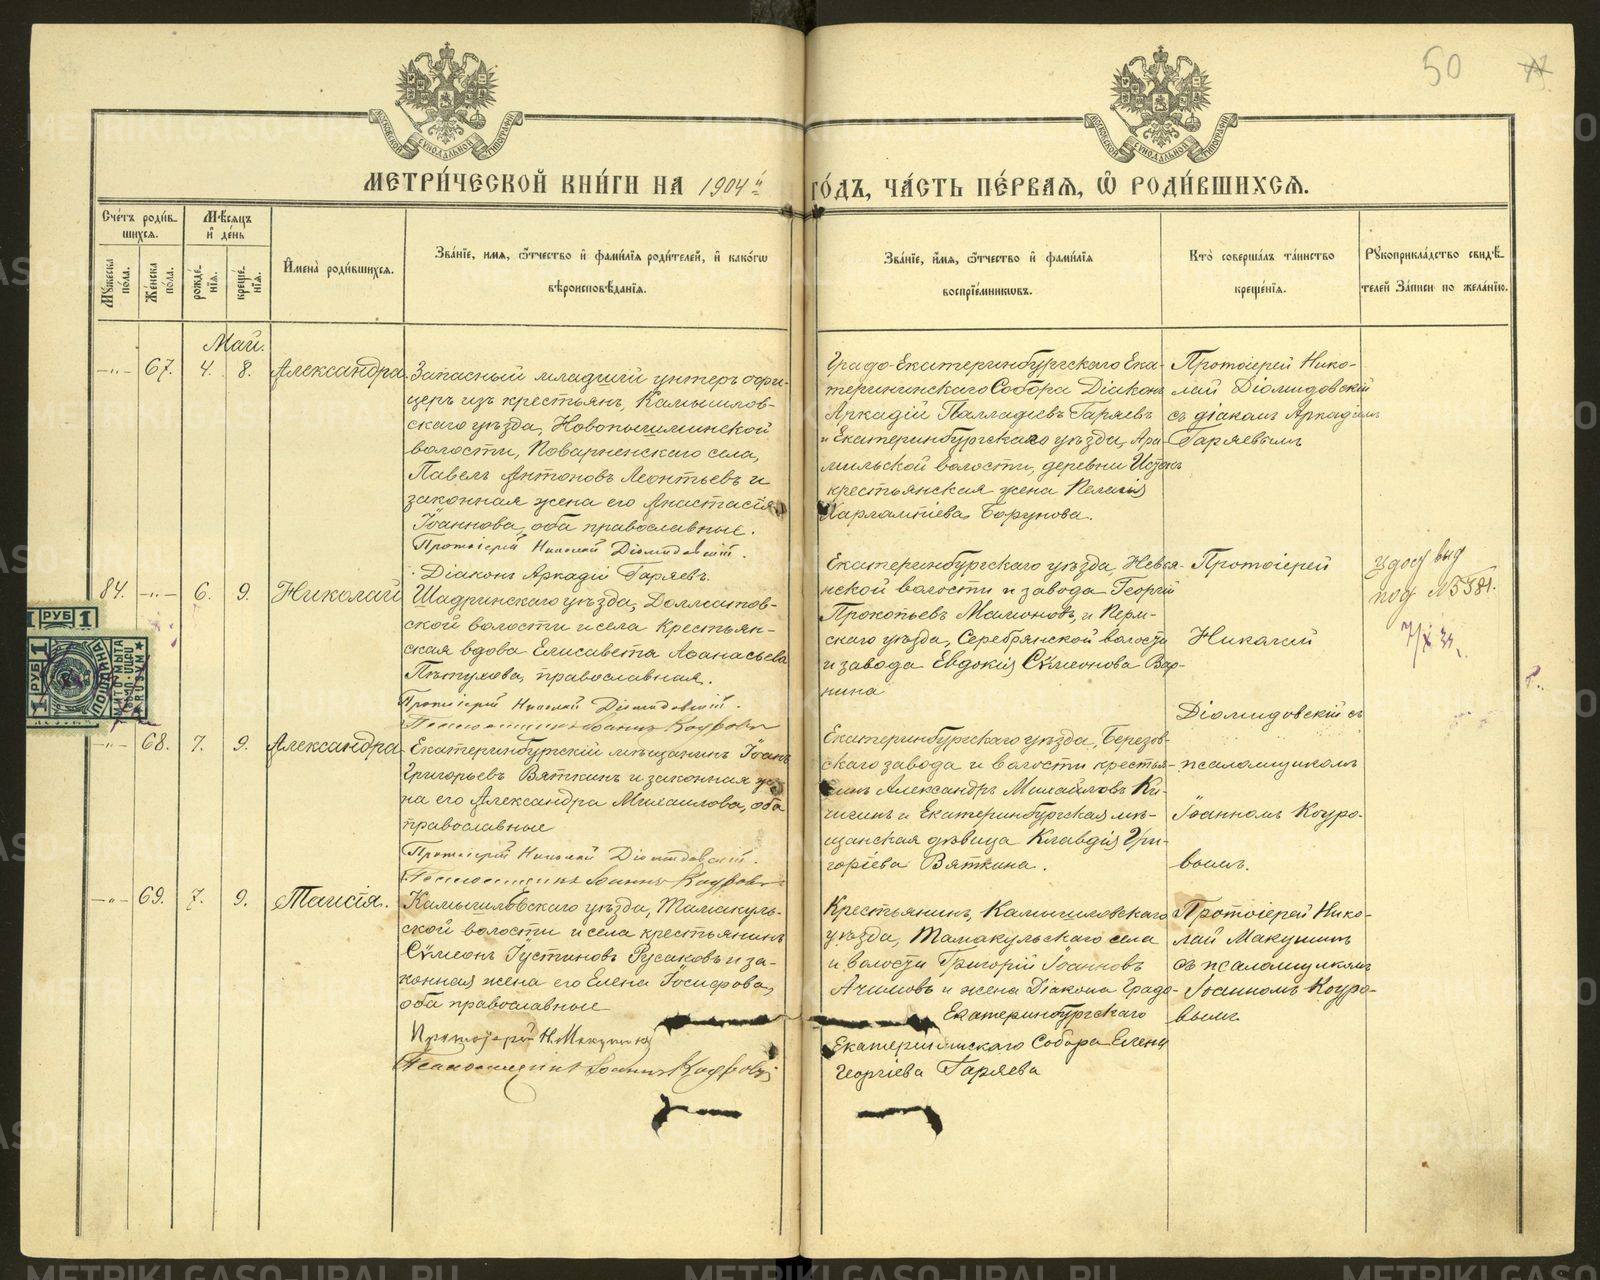 50
МОСКОВСКОЙ СѴНОДАЛЬНОЙ ТИПОГРАФІИ
МОСКОВСКОЙ СѴНОДАЛЬНОЙ ТИПОГРАФІИ
МЕТРИ́ЧЕСКОЙ КНИ́ГИ НА 1904й
ГО́ДЪ, ЧА́СТЬ ПЕ́РВАЯ, Ѿ РОДИ́ВШИХСЯ.
Сче́тъ роди́в-
шихся.
Му́жеска по́ла.
Же́нска по́ла.
Мѣ́сяцъ
и де́нь
рожде́-
нія.
креще́-
нія.
Имена̀ роди́вшихся.
Зва́ніе, имя, ѻ́тчество и фами́лія роди́телей, и како́гѡ
вѣроисповѣ́данія.
Зва́ніе, и́мя, ѻ́тчество и фами́лія
воспріе́мникѡвъ.
Кто̀ соверша́лъ та́инство
креще́нія.
Рꙋкоприкла́дство свидѣ́-
телей за́писи по жела́нію.
Май.
-"- 67. 4. 8. Александра.
Запасный младшій унтеръ офи-
церъ изъ крестьянъ, Камышлов-
скаго уѣзда, Новопышминской
волости, Поварненскаго села,
Павелъ Антоновъ Леонтьевъ и
законная жена его Анастасія
Іоаннова, оба православные.
Протоіерей Николай Діомидовскій.
Діаконъ Аркадій Гаряевъ.
Градо-Екатеринбургскаго Ека-
терининскаго Собора Діаконъ
Аркадій Палладіевъ Гаряевъ
и Екатеринбургскаго уѣзда, Ара-
мильской волости, деревни Истокъ
крестьянская жена Пелагія
Харлампіева Борунова.
Протоіерей Нико-
лай Діомидовскій
съ діакомъ Аркадіемъ
Гаряевымъ
84. -"- 6. 9. Николай
Шадринскаго уѣзда, Долматов-
ской волости и села крестьян-
ская вдова Елисавета Аѳанасьева
Пѣтухова, православная.
Протоіерей Николай Діомидовскій.
Псаломщикъ Іоаннъ Коуровъ
Екатеринбургскаго уѣзда, Невья-
нской волости и завода Георгій
Прокопьевъ Мамоновъ, и Перм-
скаго уѣзда, Серебрянской волости
и завода Евдокія Сѵмеонова Вар-
нина
Протоіерей
Николай
Діомидовскій съ
псаломщикомъ
Іоанномъ Коуро-
вымъ.
удос выд
под №5581.
РУБ 1
1 РУБ 1
ПОШЛИНА
-"- 68. 7. 9. Александра
Екатеринбургскій мѣщанинъ Іоаннъ
Григорьевъ Вяткинъ и законная же-
на его Александра Михаилова, оба
православные
Протоіерей Николай Діомидовскій.
Псаломщикъ Іоаннъ Коуровъ
Екатеринбургскаго уѣзда, Березов-
скаго завода и волости крестья-
нинъ Александръ Михаиловъ Ки-
чигинъ и Екатеринбургская мѣ-
щанская дѣвица Клавдія Гри-
горіева Вяткина.
-"- 69. 7. 9. Таисія.
Камышловскаго уѣзда, Тамакуль-
ской волости и села крестьянинъ
Сѵмеонъ Іустиновъ Русаковъ и за-
конная жена его Елена Іосифова,
оба православные
Протоіерей Н. Макушинъ
Псаломщикъ Іоаннъ Коуровъ
Крестьянинъ, Камышловскаго
уѣзда, Тамакульскаго села
и волости Григорій Іоанновъ
Ачимовъ и жена Діакона Градо-
Екатеринбургскаго
Екатерининскаго Собора Елена
Георгіева Гаряева
Протоіерей Нико-
лай Макушинъ
съ псаломщикомъ
Іоанномъ Коуро-
вымъ
METRIKI.GASO-URAL.RU